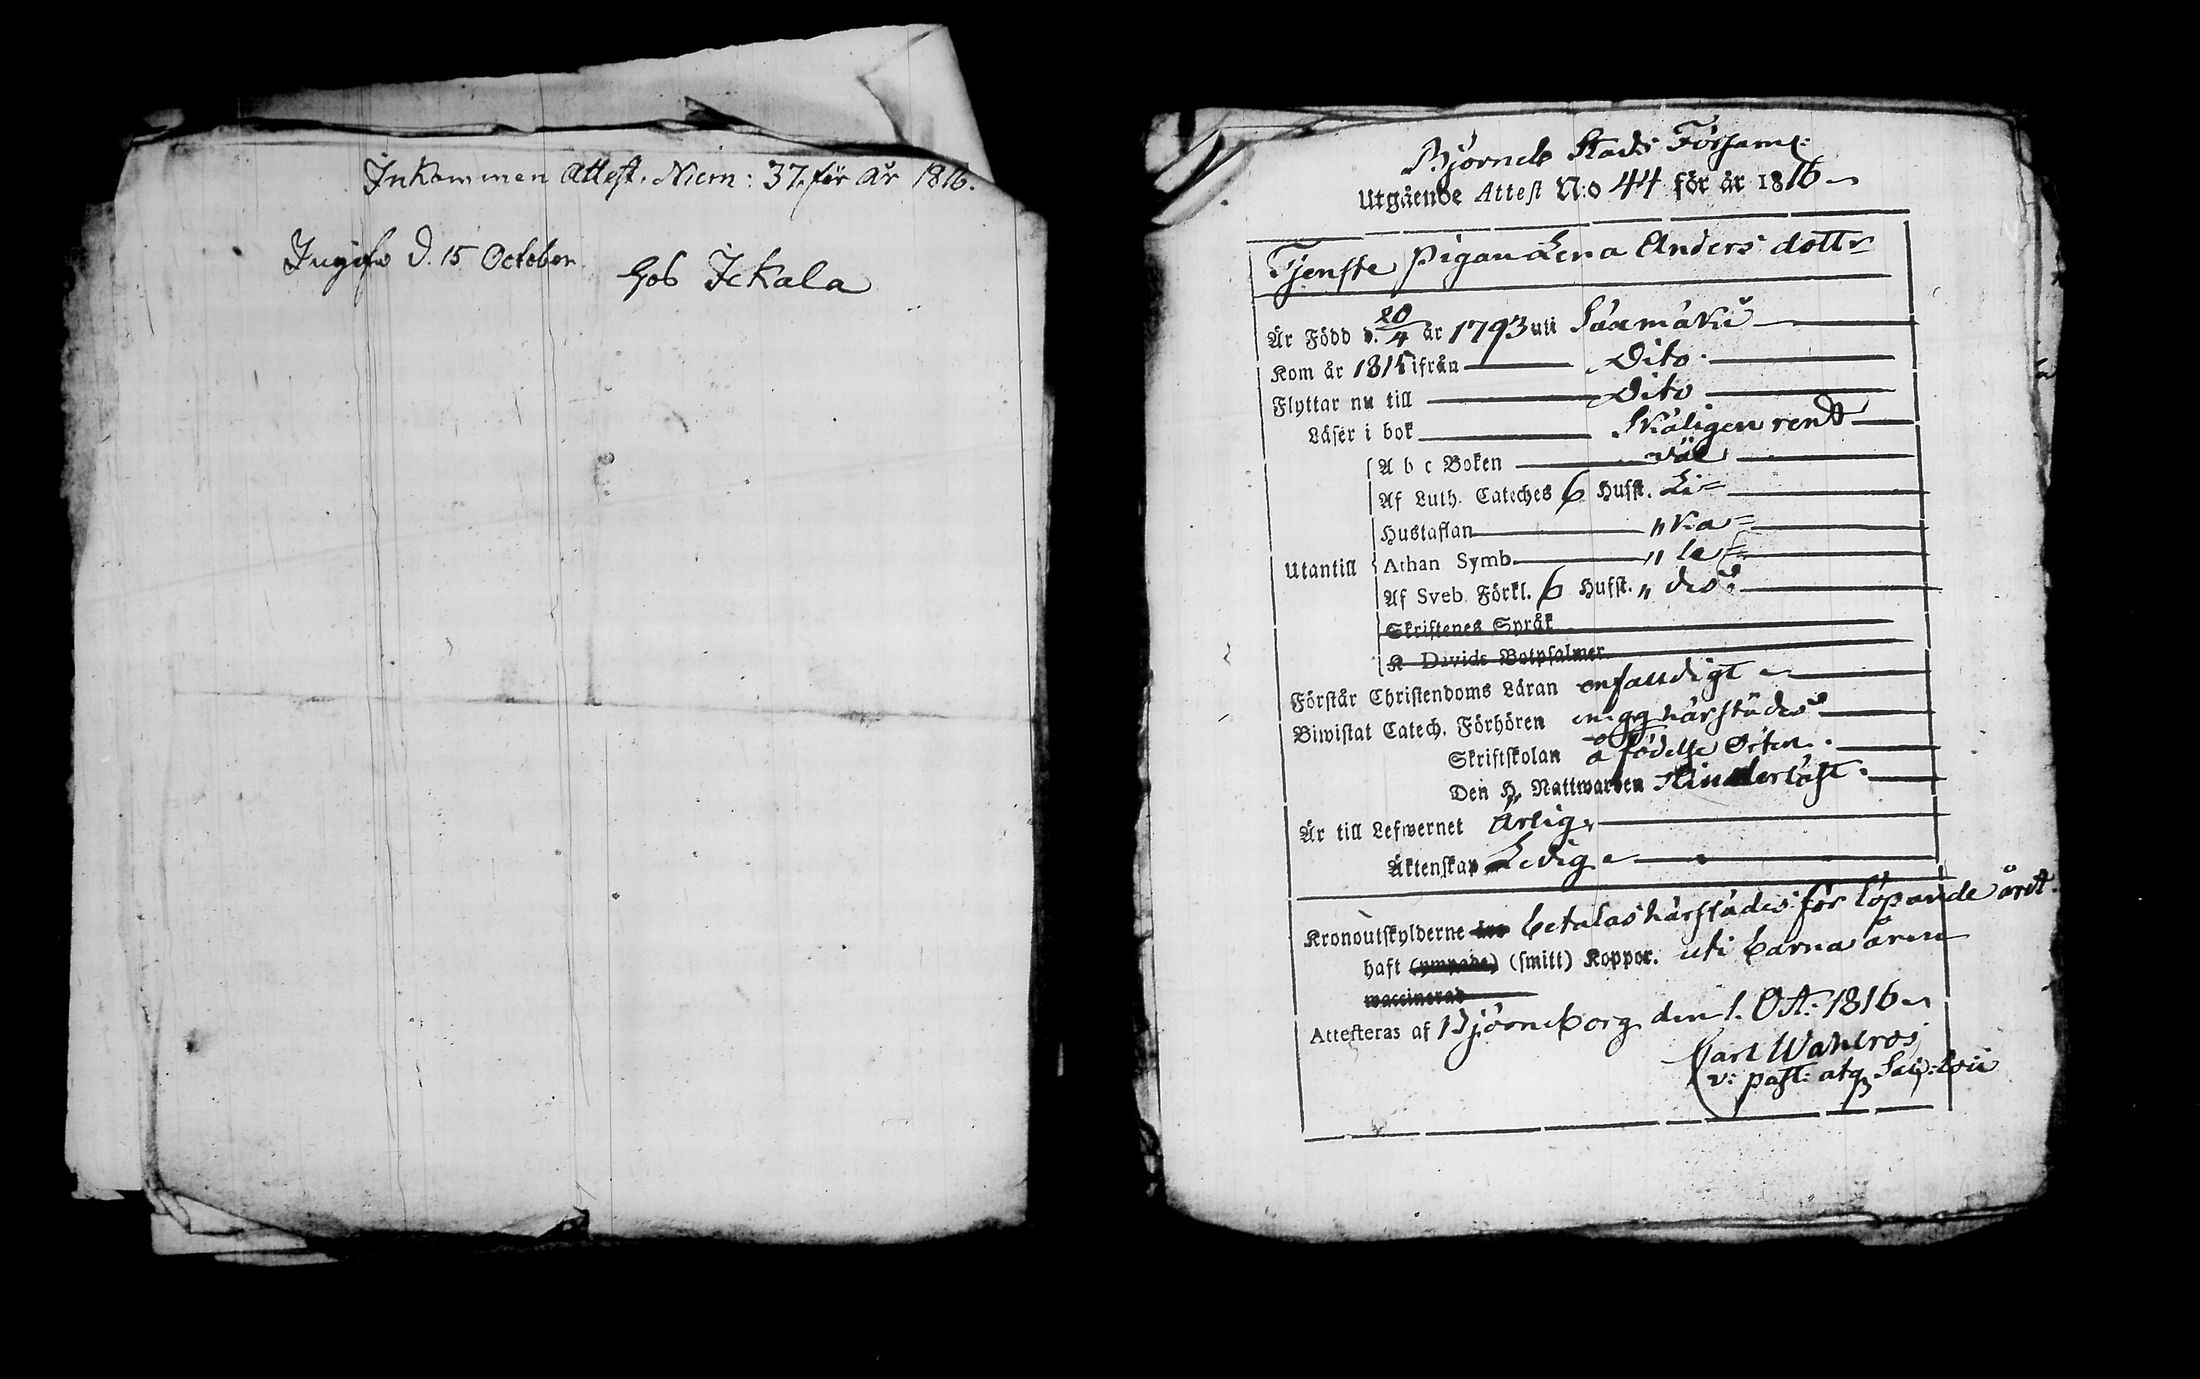 Inkommen Attest. Num: 37. för år 1816.
Ingifv. d. 15 October.
hos Ickala
Björneb. Stads Församl:
Utgående Attest N:o 44 för år 1816
Tjenste pigan Lena Anders dott:r
Är Född d. 20/4 år 1793 uti Säxmäki
Kom år 1815 ifrån Dito
Flyttar nu till Dito
Läser i bok Skäligen rent
A b c Boken väl
Af Luth. Cateches 6 Hufst. Li=
Hustaflan " ka=
Utantill Athan Symb. " le=
Af Sveb. Förkl. 6 Hufst. " des
Skriftenes Språk
K Davids Botpsalmer
Förstår Christendoms Läran enfaldigt
Biwistat Catech. Förhören härstädes
Skriftskolan å födelse Orten.
Den H. Nattwarden Hinderlöst.
Är till Lefwernet Ärlig,
Äktenskap Ledig
Kronoutskylderne betalas härstädes för löpande året.
haft (ympade) (smitt) Koppor. uti barna åren
waccinerad
Attesteras af Björneborg den 1. Oct. 1816
Carl Wahlroos
v: past: atq